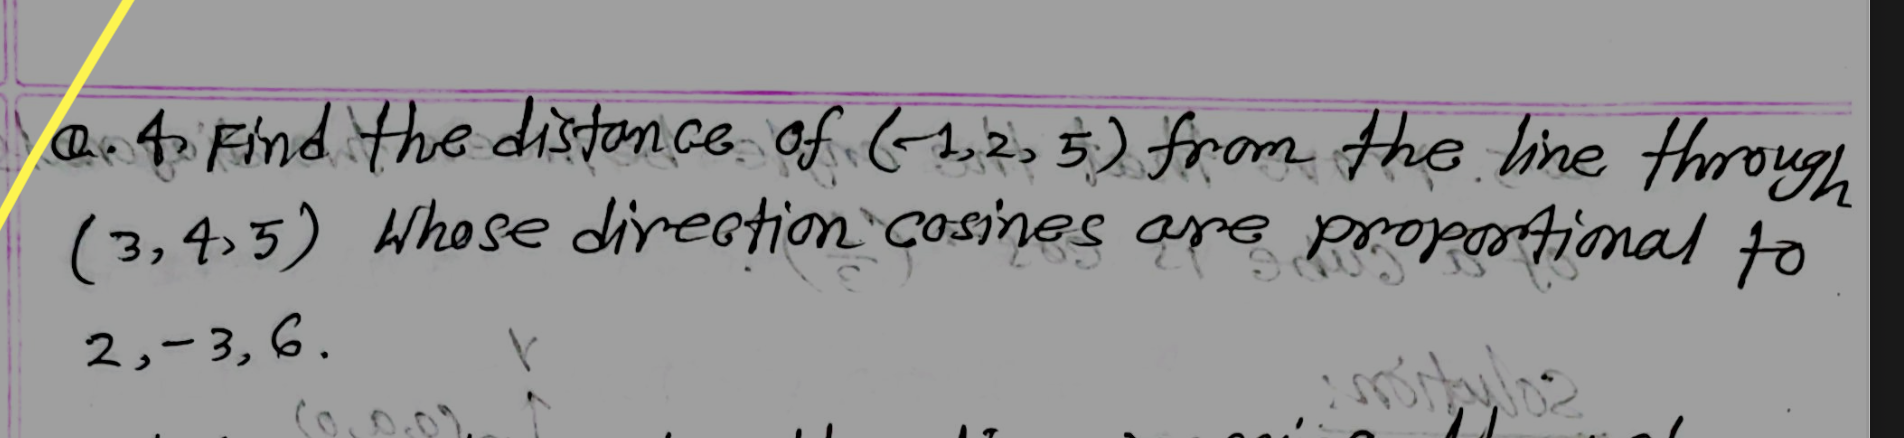 Q. 4. Find the distance of (-1, 2, 5) from the line through
(3, 4, 5) Whose direction cosines are proportional to
2, -3, 6.